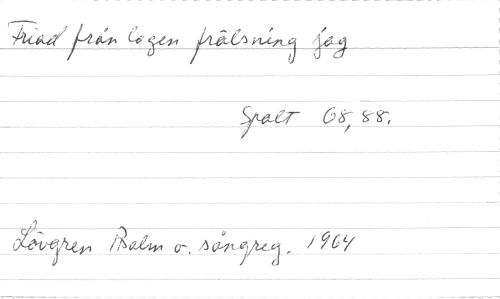 Friad från lagen frälsning jag
Spalt 68, 88.
Lövgren Psalm o. sångreg. 1964